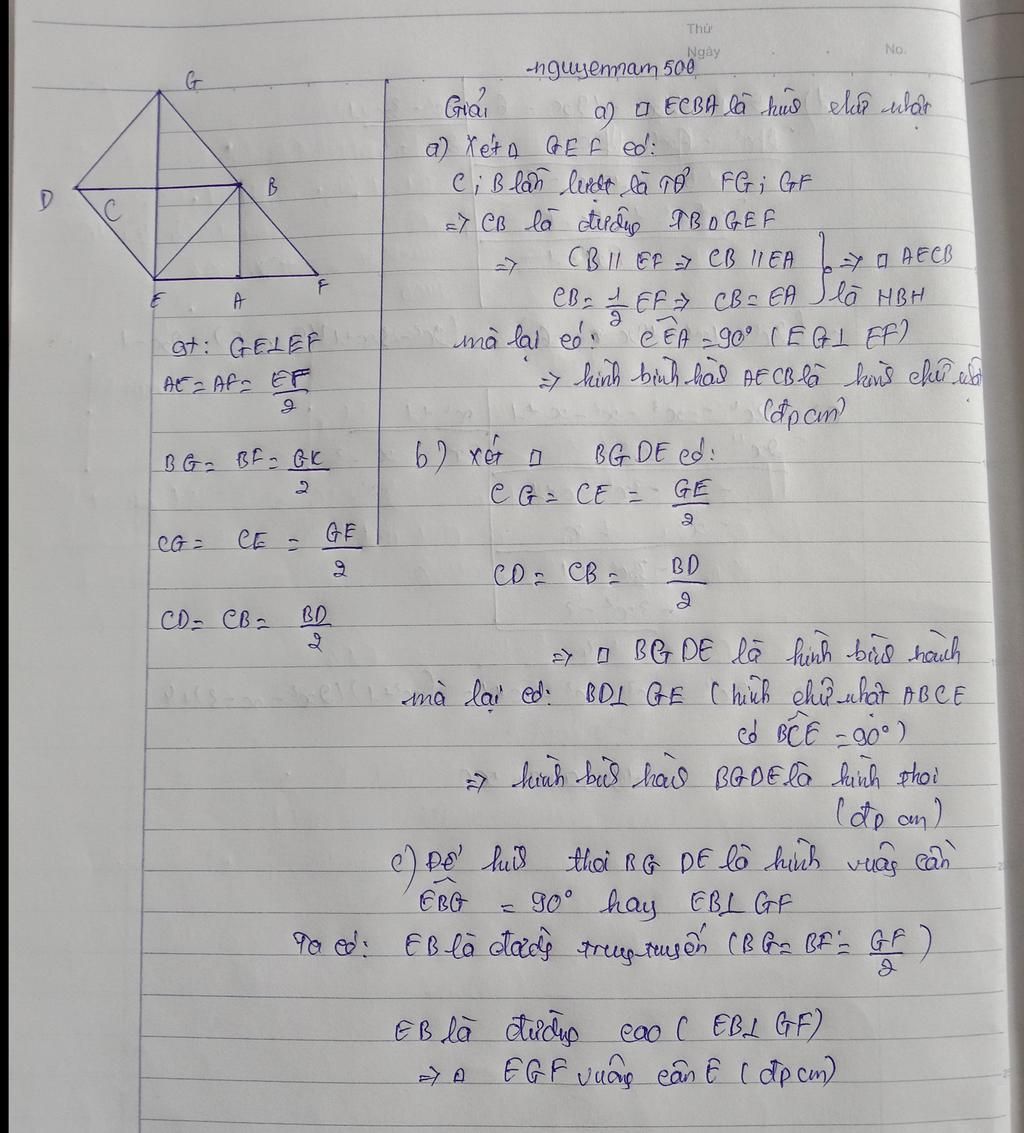 Thứ
Ngày
No.
nguyennam500
G
D
C
B
E
A
F
gt: GE⊥EF
AE = AF = EF/2
BG = BF = GK/2
CG = CE = GE/2
CD = CB = BD/2
Giải a) □ ECBA là hình chữ nhật
a) Xét △ GEF có:
C; B lần lượt là TĐ FG; GF
=> CB là đường TB △ GEF
=> CB // EF => CB // EA } => □ AECB
CB = 1/2 EF => CB = EA } là HBH
mà lại có: CÊA = 90° (EG⊥EF)
=> hình bình hành AECB là hình chữ nhật
(đpcm)
b) xét □ BGDE có:
CG = CE = GE/2
CD = CB = BD/2
=> □ BGDE là hình bình hành
mà lại có: BD⊥ GE (hình chữ nhật ABCE
có BĈE = 90°)
=> hình bình hành BGDE là hình thoi
(đpcm)
c) Để hình thoi BGDE là hình vuông cần
EB̂G = 90° hay EB⊥ GF
Ta có: EB là đường trung tuyến (BG = BF = GF/2)
EB là đường cao (EB⊥ GF)
=> △ EGF vuông cân E (đpcm)